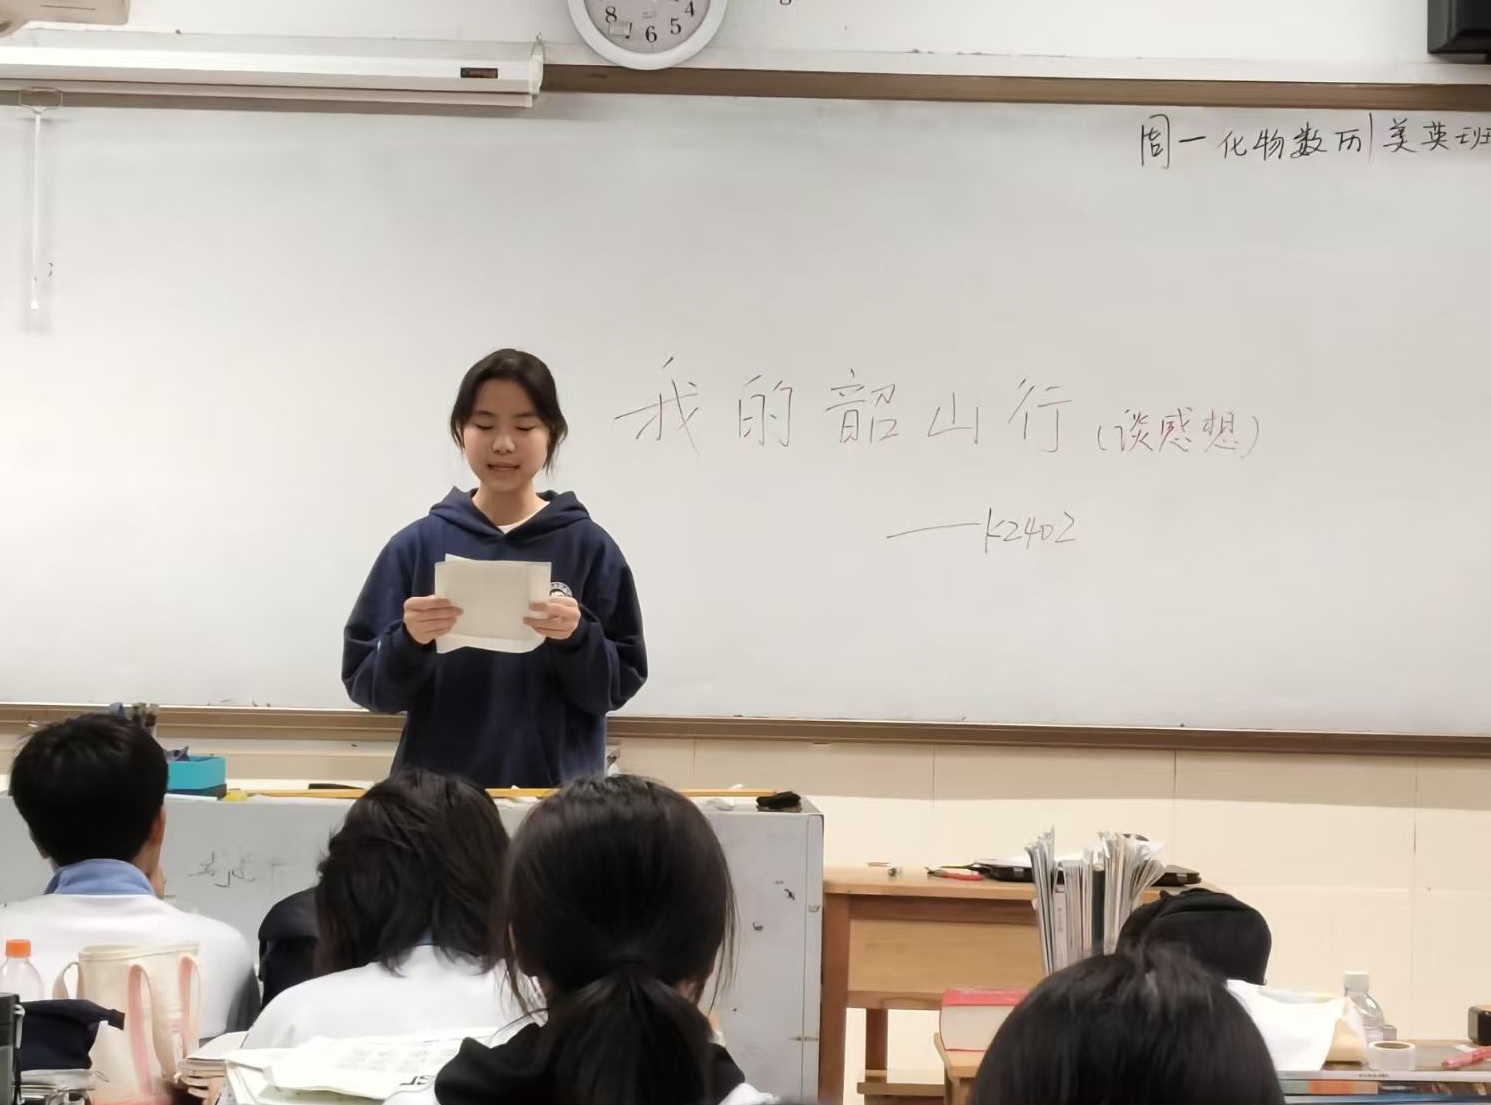 8 7 6 5 4
周一化物数历|美英班
我的韶山行(谈感想)
——K2402